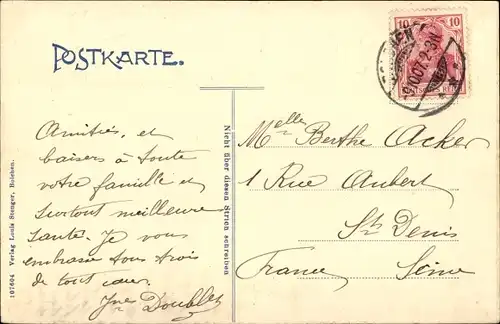 POSTKARTE.
10 10
Amitiés, et
baisers à toute
votre famille et
surtout meilleure
santé. Je vous
embrasse tous trois
de tout cœur.
Yves Doublet
107604 Verlag Louis Stenger, Bolchen.
Nicht über diesen Strich schreiben
Melle Berthe Acker
1 Rue Aubert
St Denis
France Seine